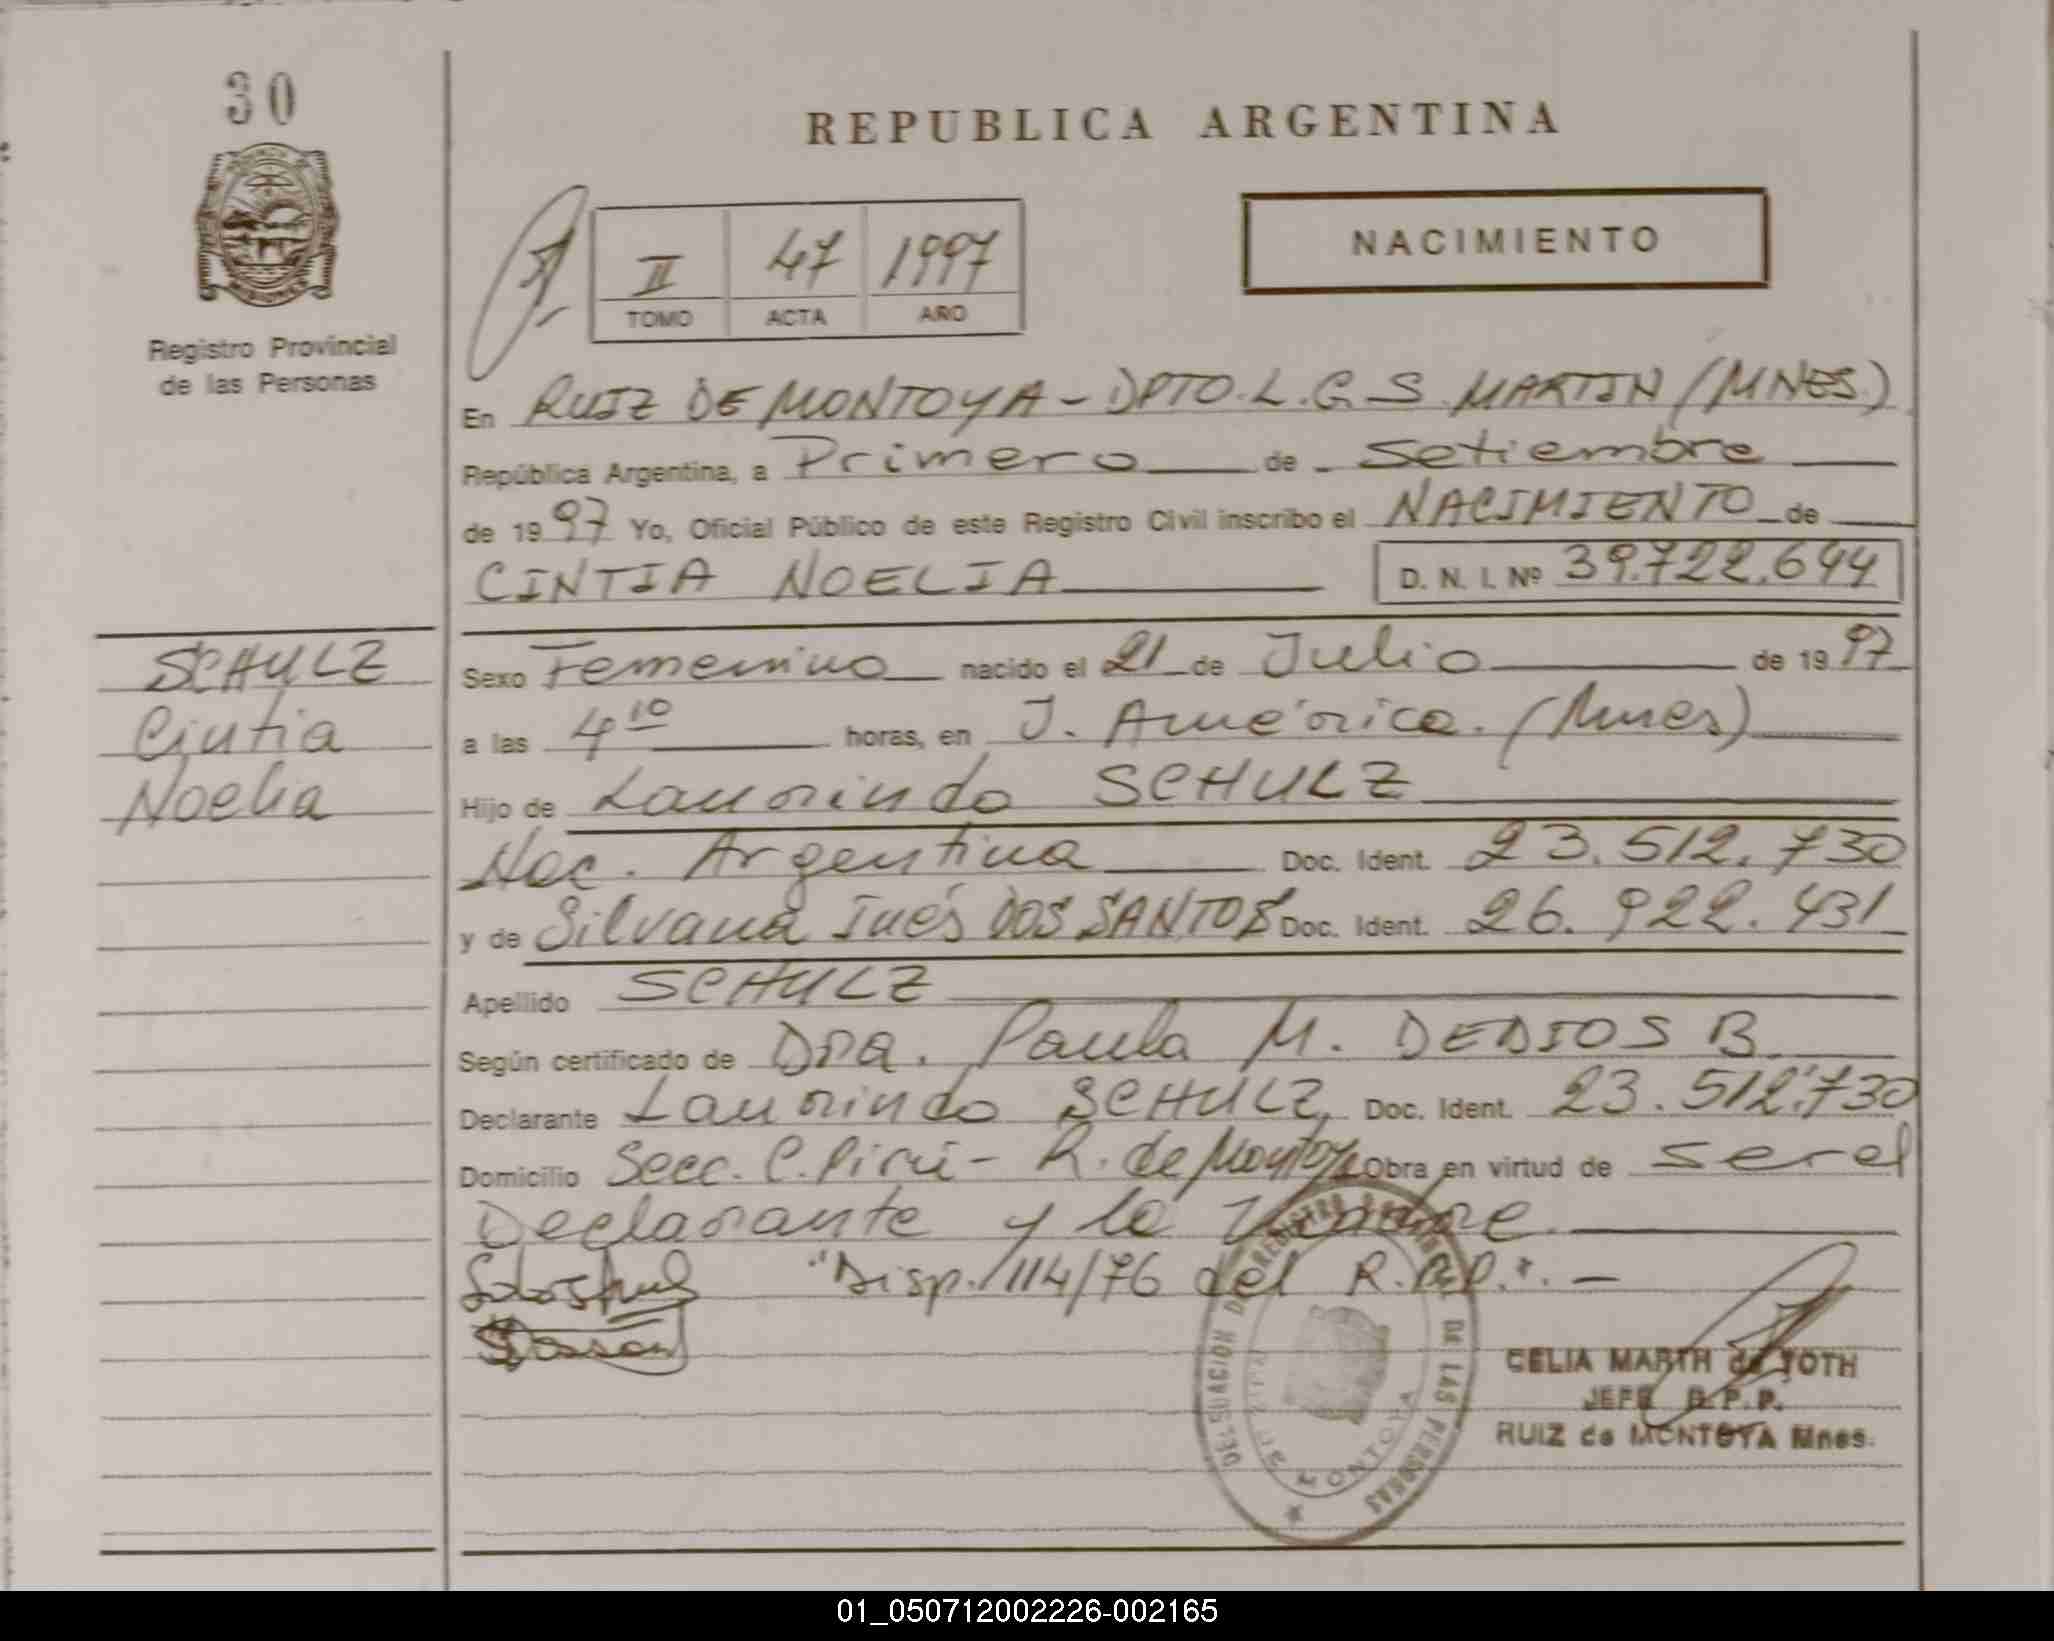 30
REPUBLICA ARGENTINA
NACIMIENTO
II 47 1997
TOMO ACTA AÑO
Registro Provincial
de las Personas
En RUIZ DE MONTOYA - DPTO. L.G.S. MARTIN (MNES.)
República Argentina, a Primero de setiembre
de 1997 Yo, Oficial Público de este Registro Civil inscribo el NACIMIENTO de
CINTIA NOELIA D. N. I. Nº 39.722.644
SCHULZ
Cintia
Noelia
Sexo Femenino nacido el 21 de Julio de 1997
a las 4 10 horas, en J. América. (Mnes)
Hijo de Laurindo SCHULZ
Nac. Argentina Doc. Ident. 23.512.730
y de Silvana Inés DOS SANTOS Doc. Ident. 26.922.431
Apellido SCHULZ
Según certificado de Dra. Paula M. DEDIOS B.
Declarante Laurindo SCHULZ, Doc. Ident. 23.512.730
Domicilio Secc. C. Pirú - R. de Montoya Obra en virtud de ser el
Declarante y la
"Disp. 114/76 del R.P.P.". -
DELEGACION DE REGISTRO DE LAS PERSONAS
RUIZ DE MONTOYA
CELIA MARTH de TOTH
JEFE R.P.P.
RUIZ de MONTOYA Mnes.
01_050712002226-002165